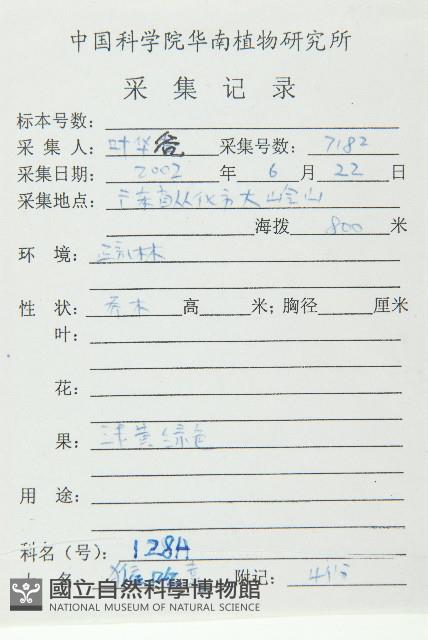 中国科学院华南植物研究所
采集记录
标本号数:
采集人: 叶华谷 采集号数: 7182
采集日期: 2002 年 6 月 22 日
采集地点: 广东省从化市大岭山
海拨 800 米
环境: 林
性状: 乔木 高 米; 胸径 厘米
叶:
花:
果: 浅黄绿色
用途:
科名(号): 128A
名 猴欢喜 附记: 415
國立自然科學博物館
NATIONAL MUSEUM OF NATURAL SCIENCE